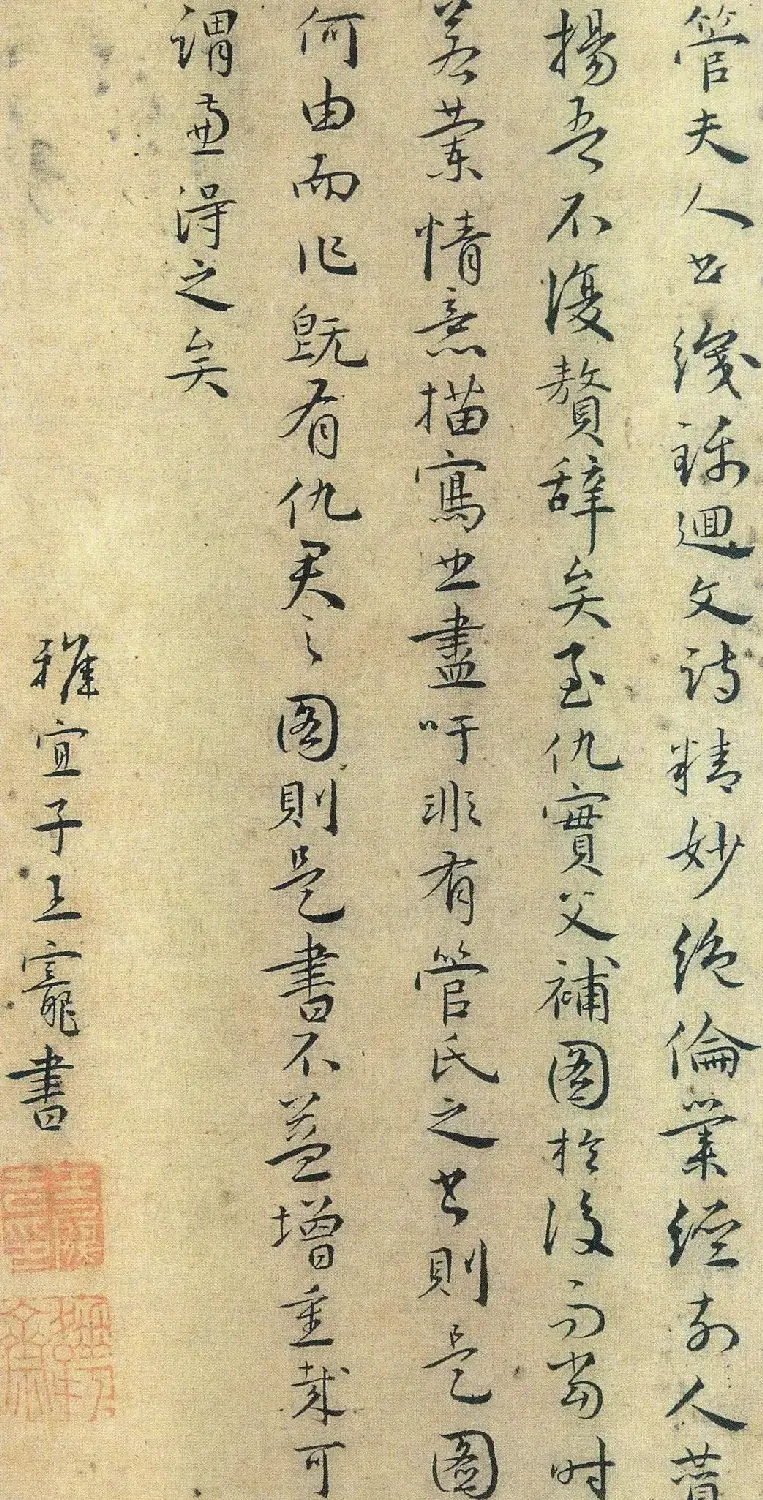 管夫人書織錦迴文詩精妙絕倫業經前人贊
揚吾不復贅辭矣至仇實父補圖於後而當時
若蘭情意描寫也盡吁非有管氏之書則是圖
何由而作既有仇君之圖則是書不益增重哉可
謂兼得之矣
雅宜子王寵書